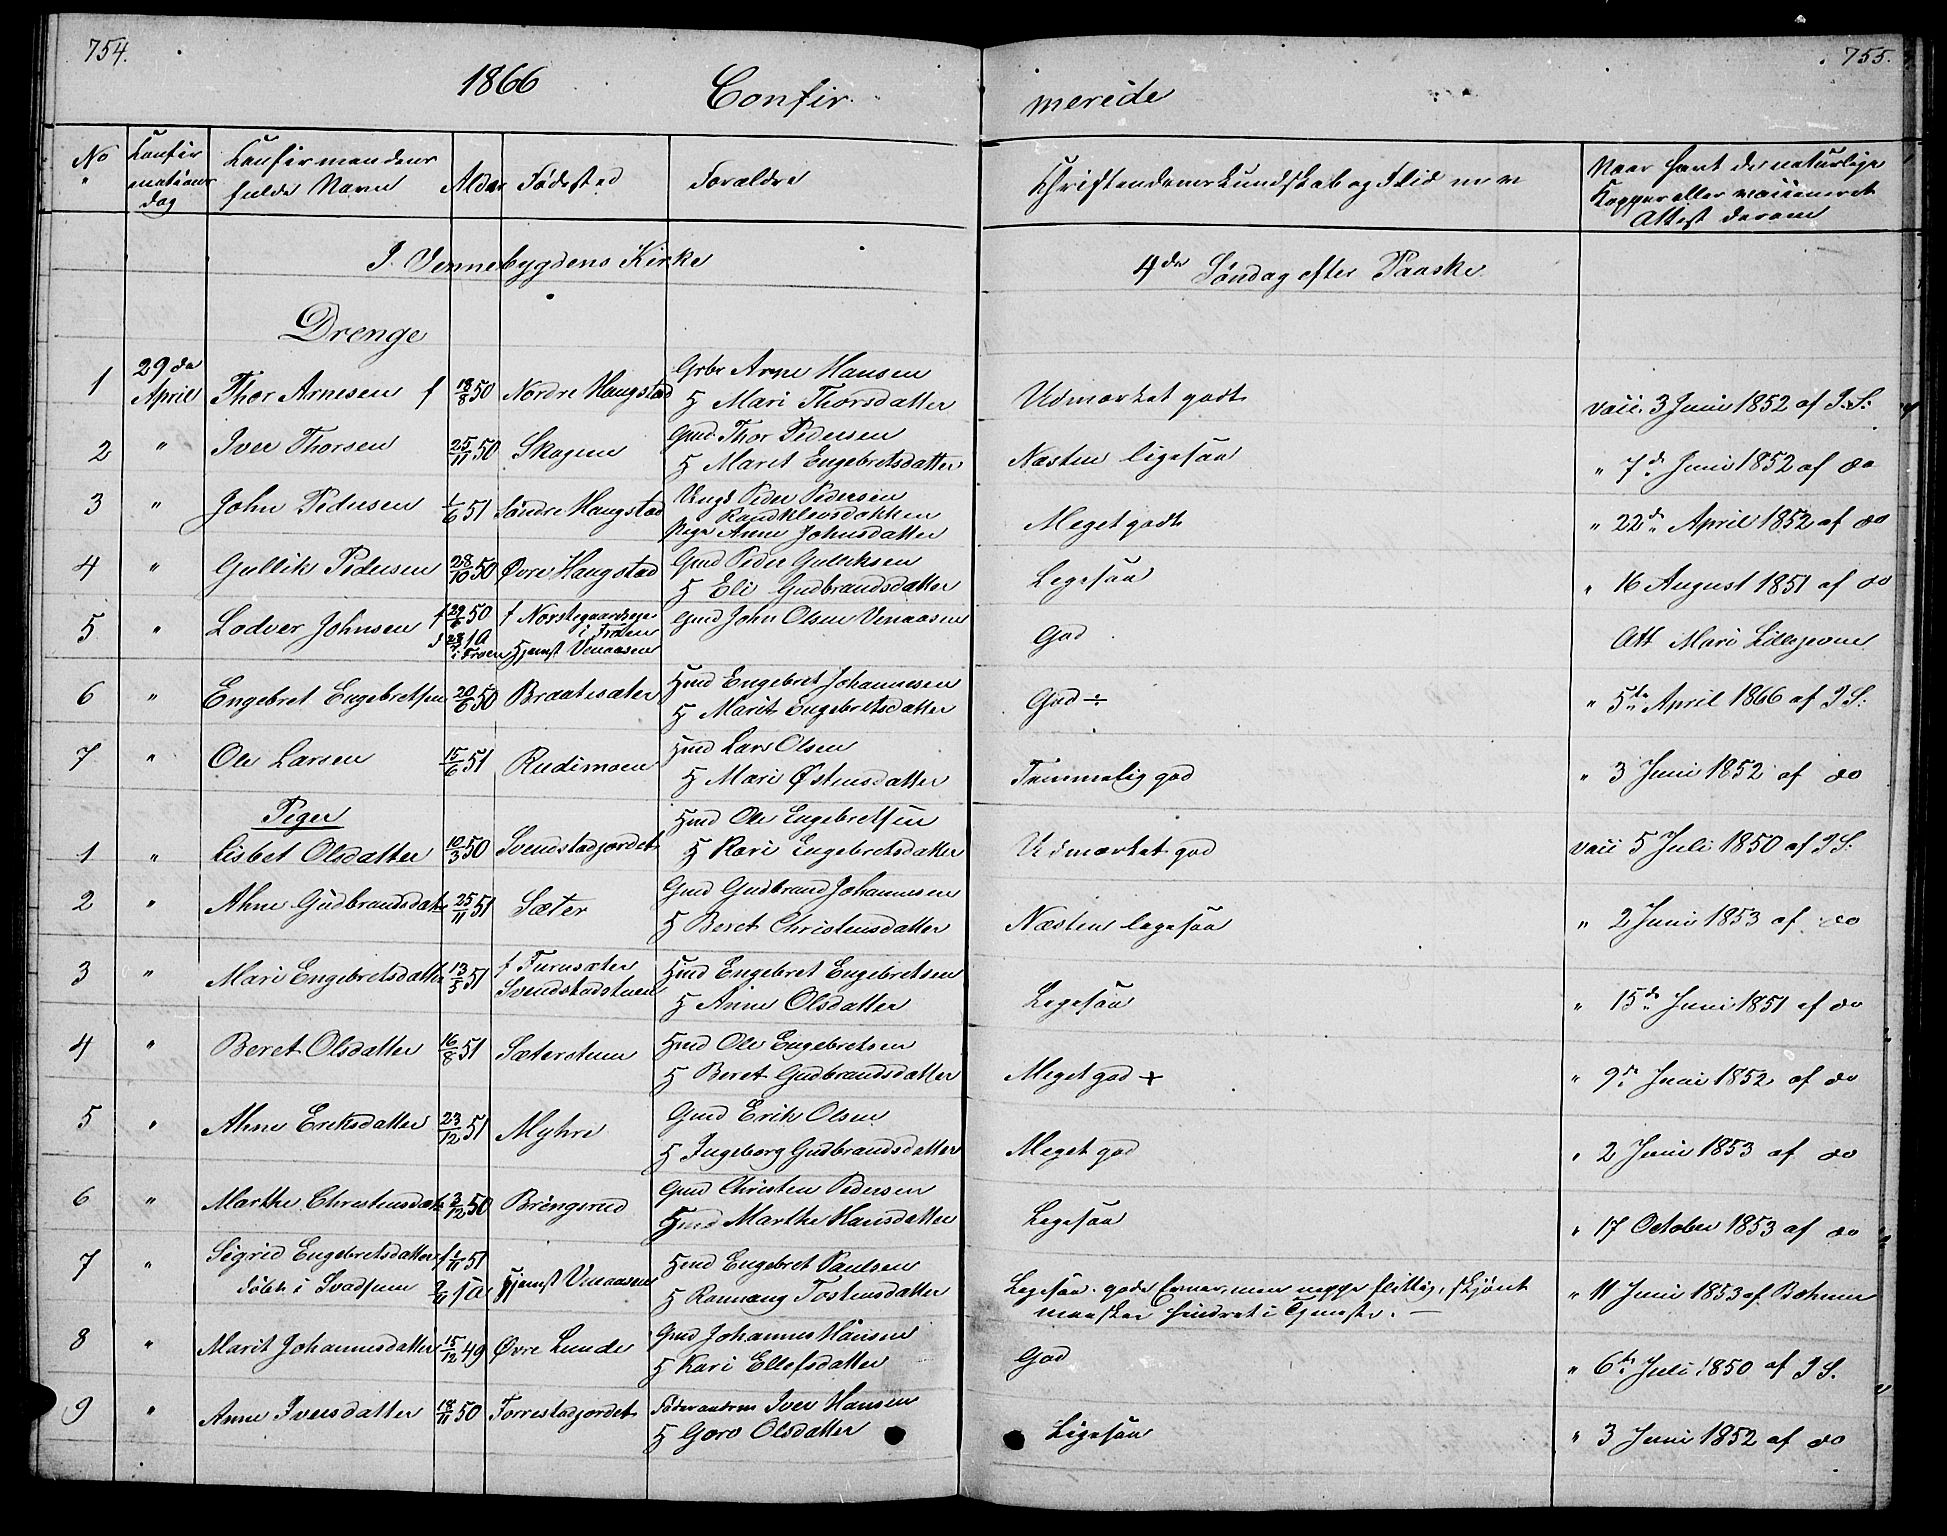 754.
755.
1866 Confir merede
No
Confirmations dag
Confirmandens fulde Navn
Alder
Fødested
Forældre
Christendoms Kundskab og Flid m v
Naar havt de naturlige Kopper eller vaccineret Attest derom
I Vennebygdens Kirke 4de Søndag efter Paaske
Drenge
1 29de April Thor Arnesen f 18/8 50 Nordre Haugstad Grbr Arne Hansen H Mari Thorsdatter Udmærket godt vacc. 3 Juni 1852 af J. S:
2 " Iver Thorsen 25/11 50 Skagen Gmd Thor Pedersen H Marit Engebretsdatter Næsten ligesaa " 7de Juni 1852 af do
3 " John Pedersen 1/6 51 Søndre Haugstad Ungk Peder Pedersen Randklevsdokken Pige Anne Johnsdatter Meget godt " 22de April 1852 af do
4 " Gullik Pedersen 28/10 50 Øvre Haugstad Gmd Peder Gulliksen H Eli Gudbrandsdatter Ligesaa " 16 August 1851 af do
5 " Lodver Johnsen f 50 f Norstegaardseie i Froen Hjemst Venaasen Gmd John Olsen Venaasen God Att Mari Lillejevne
6 " Engebret Engebretsen 20/6 50 Braatesæter Hmd Engebret Johannesen H Marit Engebretsdatter God ÷ " 5te April 1866 af J S:
7 " Ole Larsen 15/6 51 Rudimoen Hmd Lars Olsen H Mari Østensdatter Temmelig god " 3 Juni 1852 af do
Piger
1 " Lisbet Olsdatter 10/3 50 Svendstadjordet Hmd Ole Engebretsen H Kari Engebretsdatter Udmærket god vacc 5 Juli 1850 af J S:
2 " Ahne Gudbrandsdatr 25/11 51 Sæter Gmd Gudbrand Johannesen H Beret Christensdatter Næsten ligesaa " 2 Juni 1853 af do
3 " Mari Engebretsdatter 13/5 51 f Furusæter Svendstadstuen Hmd Engebret Engebretsen H Anne Olsdatter Ligesaa " 15de Juni 1851 af do
4 " Beret Olsdatter 16/8 51 Sæterstuen Hmd Ole Engebretsen H Beret Gudbrandsdatter Meget god + " 9de Juni 1852 af do
5 " Ahne Eriksdatter 23/12 51 Myhre Gmd Erik Olsen H Ingeborg Gudbrandsdatter Meget god " 2 Juni 1853 af do
6 " Marthe Christensdatr 3/12 50 Bringsrud Gmd Christen Pedersen Hmd Marthe Hansdatter Ligesaa " 17 October 1853 af do
7 " Sigrid Engebretsdatter døbt i Svadsum f 1/11 51 Hjemst Venaasen Hmd Engebret Paulsen H Rannaug Tostensdatter Ligesaa. gode Evner, men neppe flittig, skjønt maaskee hindret i Tjeneste. — " 11 Juni 1853 af Bohmen
8 " Marit Johannesdatter 15/12 49 Øvre Lunde Gmd Johannes Hansen H Kari Ellefsdatter God " 6te Juli 1850 af J S.
9 " Anne Iversdatter 18/11 50 Forrestadjordet Føderaadsm Iver Hansen H Goro Olsdatter Ligesaa " 3 Juni 1852 af do